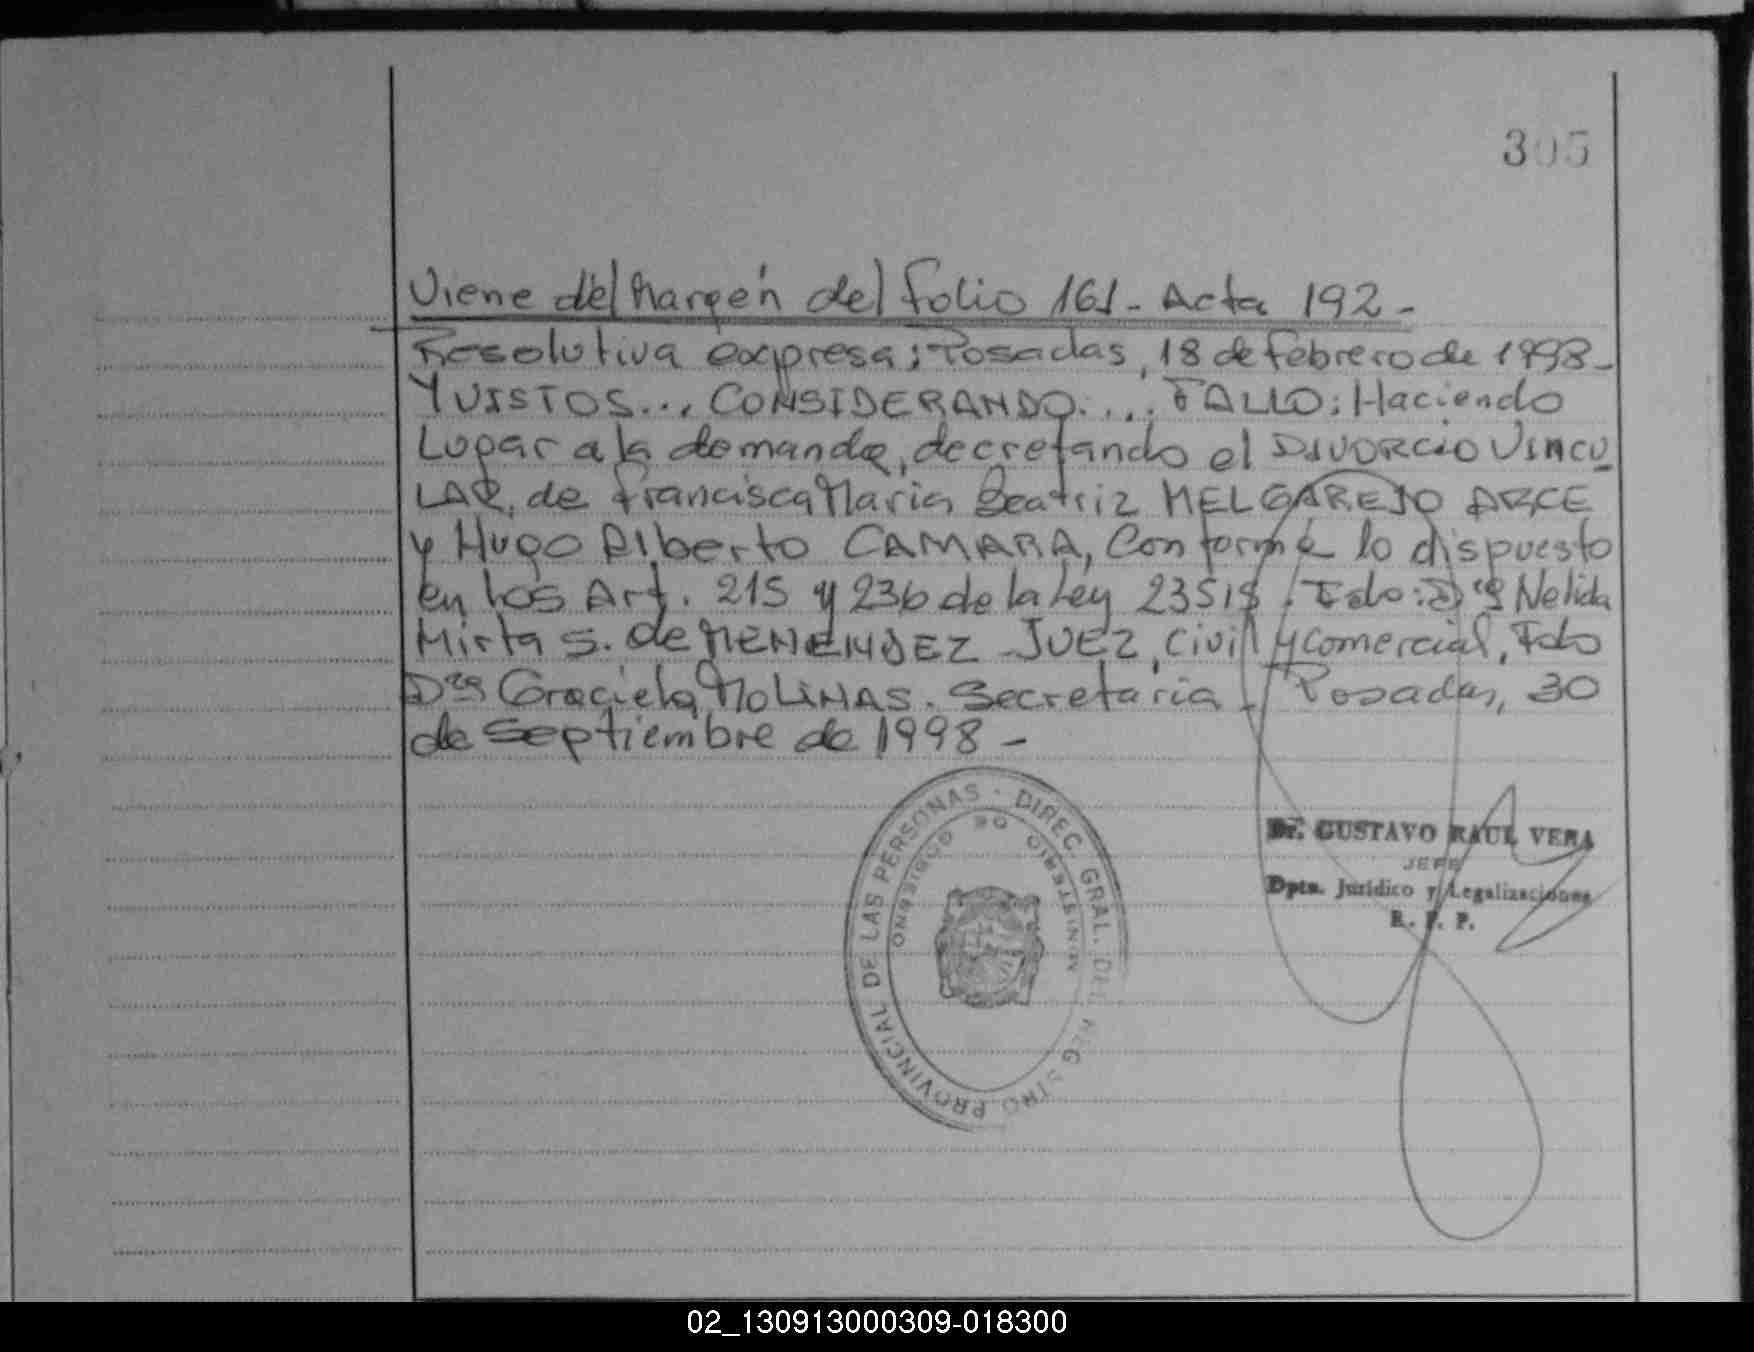 305
Viene del Margen del folio 161 - Acta 192 -
Resolutiva expresa; Posadas, 18 de febrero de 1998 -
Y VISTOS... CONSIDERANDO.... FALLO: Haciendo
Lugar a la demanda, decretando el DIVORCIO VINCU
LAR, de Francisca Maria Beatriz MELGAREJO ARCE
y Hugo Alberto CAMARA, Conforme lo dispuesto
en los Art. 215 y 236 de la Ley 23515. Fdo: Dra Nelida
Mirta S. de MENENDEZ - JUEZ, Civil y Comercial, Fdo
Dra Graciela MOLINAS. Secretaria - Posadas, 30
de Septiembre de 1998 -
DIREC. GRAL. DEL REGISTRO PROVINCIAL DE LAS PERSONAS
MINISTERIO DE GOBIERNO
Dr. GUSTAVO RAUL VERA
JEFE
Dpto. Jurídico y Legalizaciones
R. P. P.
02_130913000309-018300